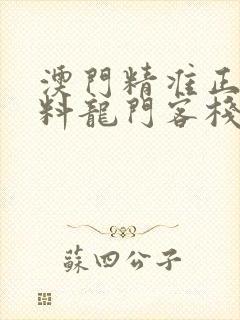 澳門精准正
料龍門客棧
蘇四公子